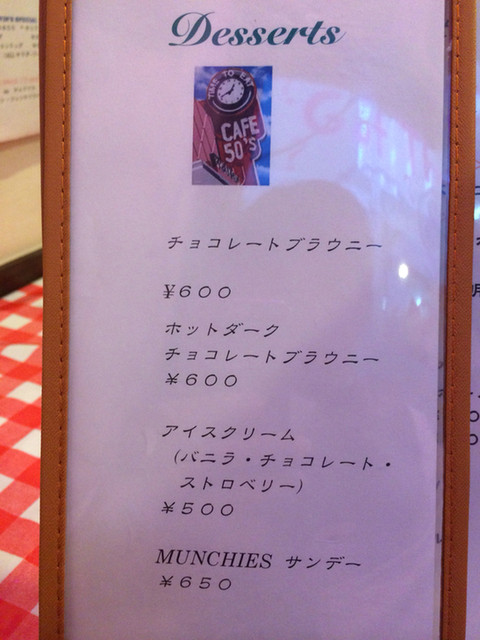 Desserts
TIME TO EAT
CAFE
50'S
チョコレートブラウニー
¥６００
ホットダーク
チョコレートブラウニー
￥６００
アイスクリーム
(バニラ・チョコレート・
ストロベリー)
￥５００
MUNCHIES サンデー
￥６５０